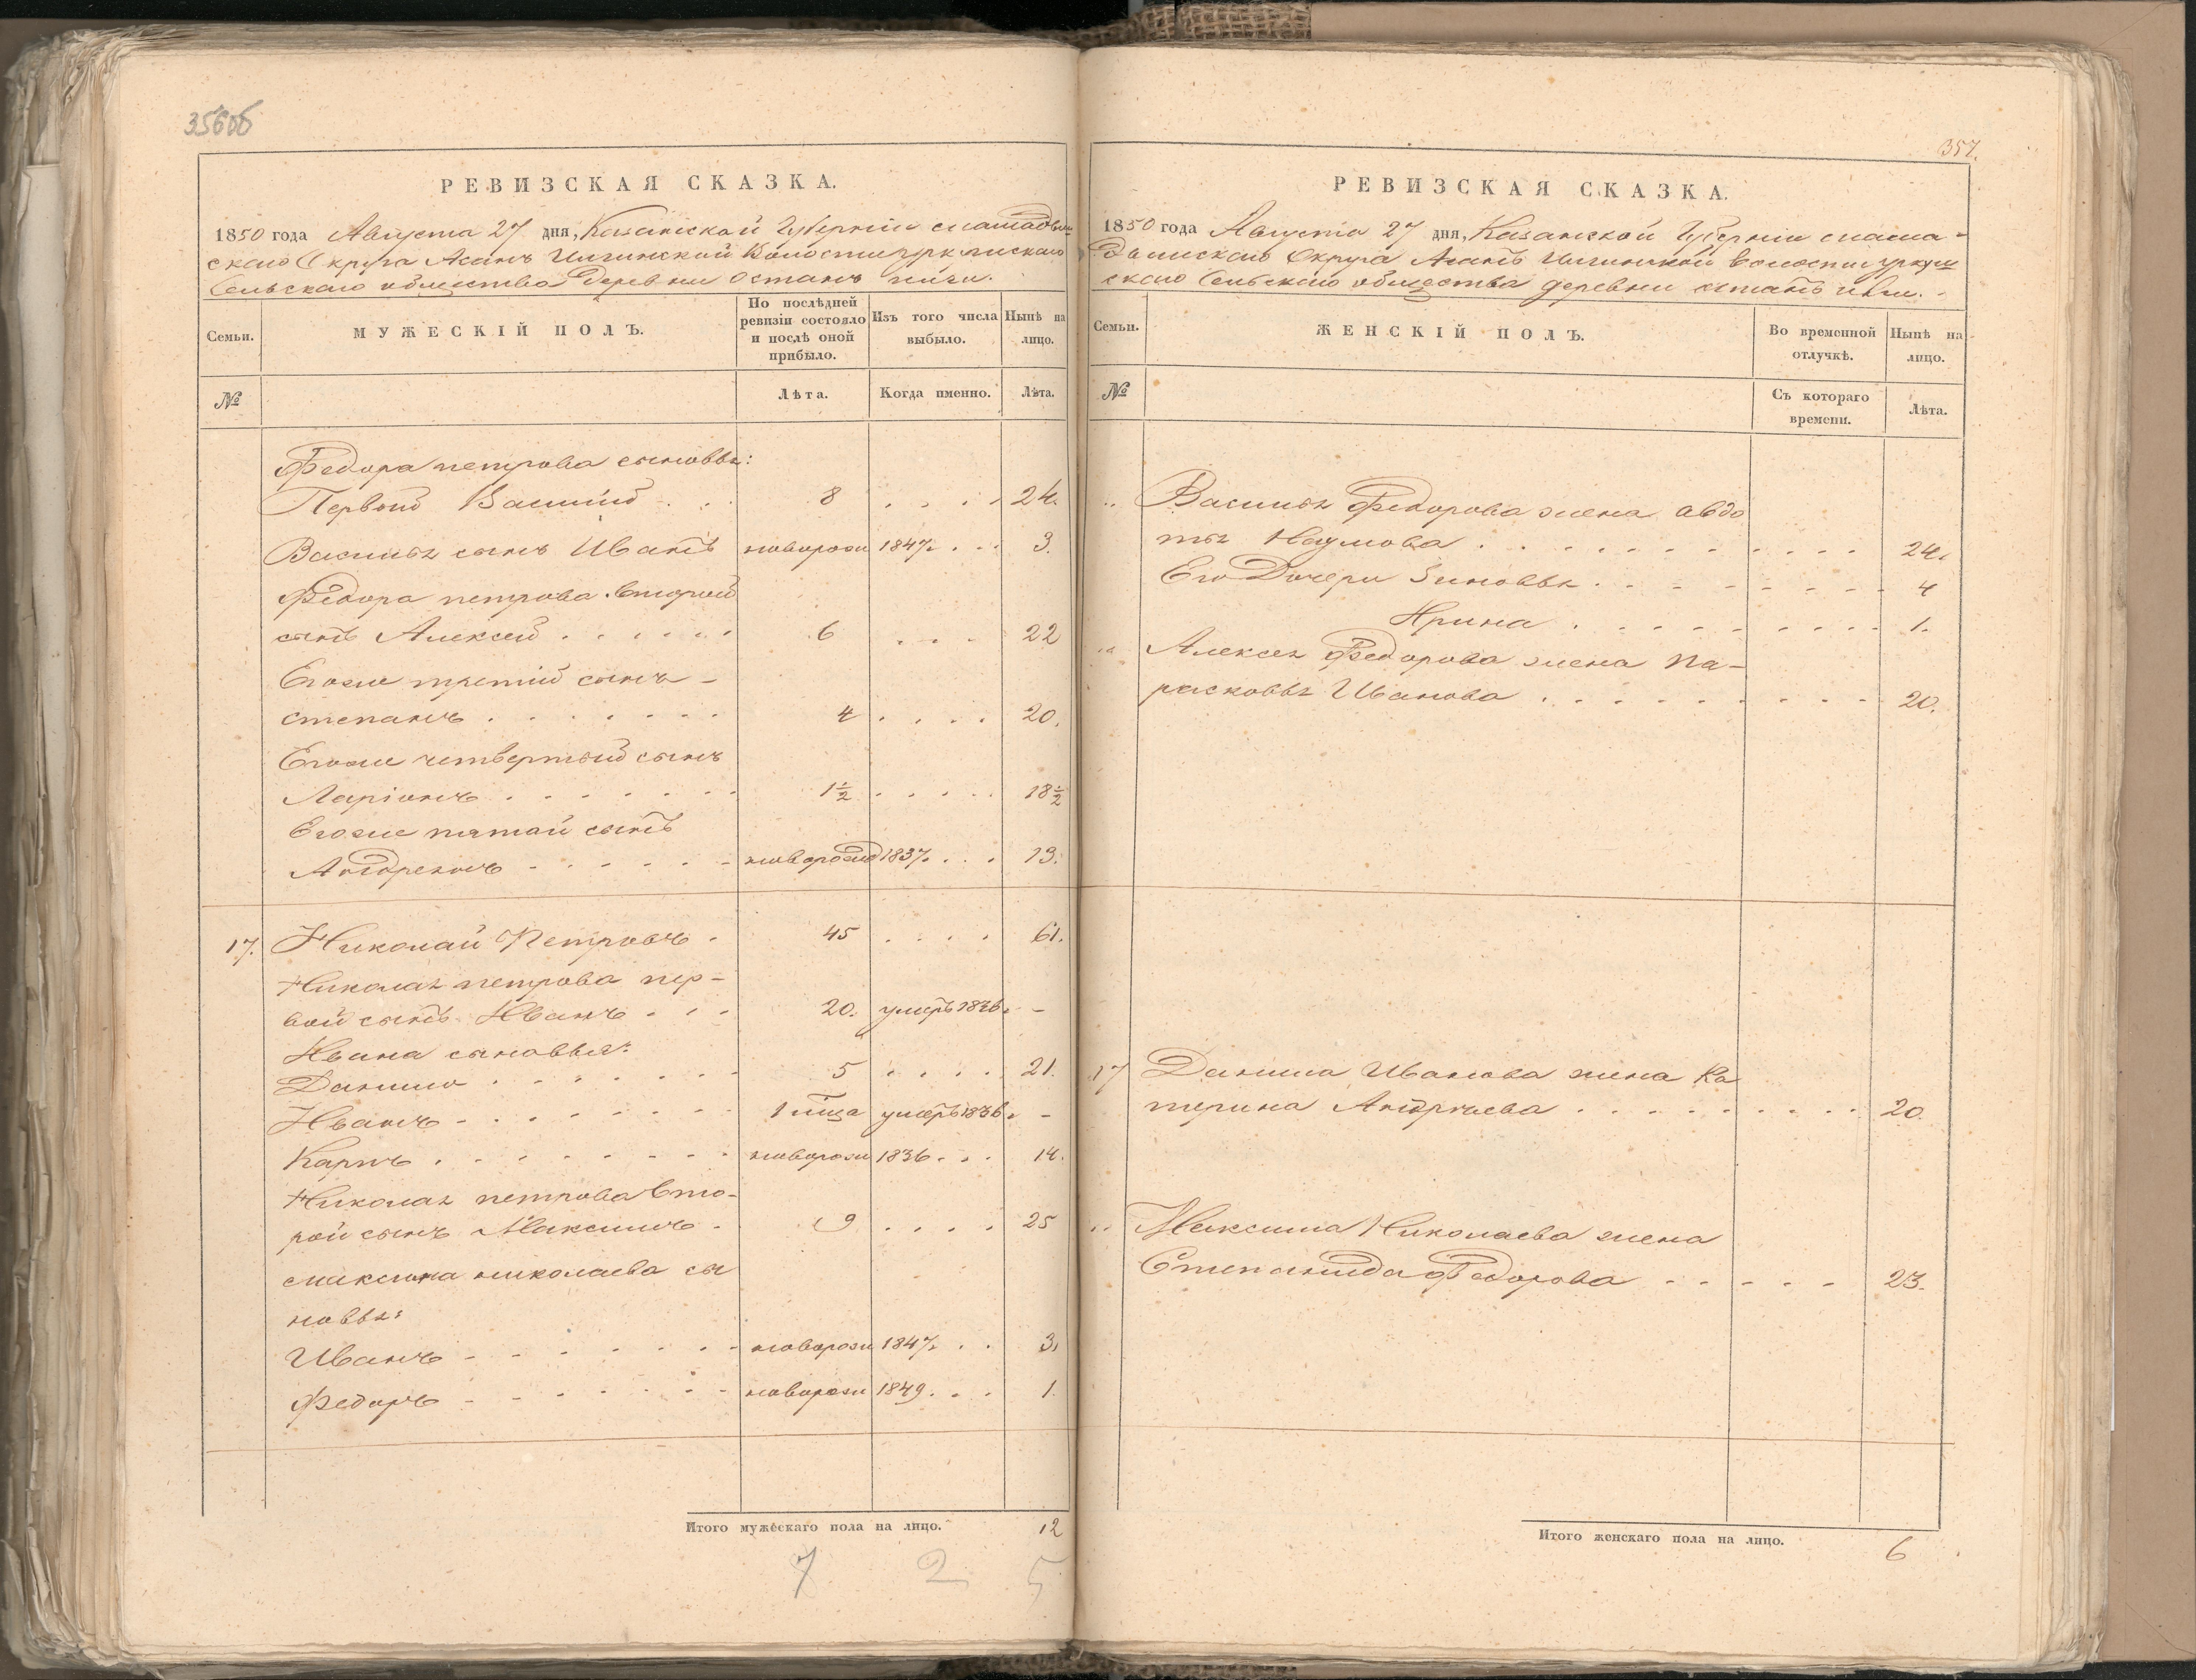 356об
РЕВИЗСКАЯ СКАЗКА.
1850 года Августа 27 дня, Казанской Губерніи мамадыш-
скаго Округа Асанъ Илгинской Волости
Сельскаго общества Деревни Останъ
Семьи.
МУЖЕСКІЙ ПОЛЪ.
По послѣдней ревизіи состояло и послѣ оной прибыло.
Изъ того числа выбыло.
Нынѣ на лицо.
№
Лѣта.
Когда именно.
Лѣта.
Федора петрова сыновья:
Первой Василий . . 8 . . . . 24.
Василья сынъ Иванъ новорож 1847. . . 3.
Федора петрова второй
сынъ Алексей . . . . . . 6 . . . 22
Егоже третий сынъ -
степанъ . . . . . . . 4 . . . . 20.
Егоже четвертый сынъ
Ларіонъ . . . . . . . 1½ . . . . . 18½
Егоже пятой сынъ
Андреянъ - - - - - - новорожд 1837. . . . 13.
17. Николай Петровъ . 45 . . . . 61.
Николая петрова пер-
вой сынъ Иванъ . . . 20. умеръ 1836. -
Ивана сыновья:
Данило . . . . . . . 5 . . . . 21.
Иванъ - . . . . . . 1 умеръ 1836. -
Карпъ . . . . . . . . новорож 1836. . . 14.
Николая петрова вто-
рой сынъ Максимъ . 9 . . . . 25
максима николаева сы
новья:
Иванъ - - - - - - - новорож 1847. . . 3.
Федоръ - - - - - - - новорож 1849. . . . 1.
Итого мужескаго пола на лицо. 12
7 2 5
357.
РЕВИЗСКАЯ СКАЗКА.
1850 года Августа 27 дня, Казанской Губерніи мама-
дышскаго Округа Асанъ Илгинской волости
скаго Сельскаго общества деревни останъ
Семьи.
ЖЕНСКІЙ ПОЛЪ.
Во временной отлучкѣ.
Нынѣ на лицо.
№
Съ котораго времени.
Лѣта.
Василья Федорова жена авдо
тья Наумова . . . . . . . . . . . 24.
Его Дочери Зиновья . . . . . . . . 4
Ирина . . . . . . . . . 1.
Алексея Федорова жена Па-
расковья Иванова . . . . . . . . . 20.
17 Данила Иванова жена Ка
терина Андреева . . . . . . . . . 20.
Максима Николаева жена
Степанида Федорова - - - - - 23.
Итого женскаго пола на лицо. 6